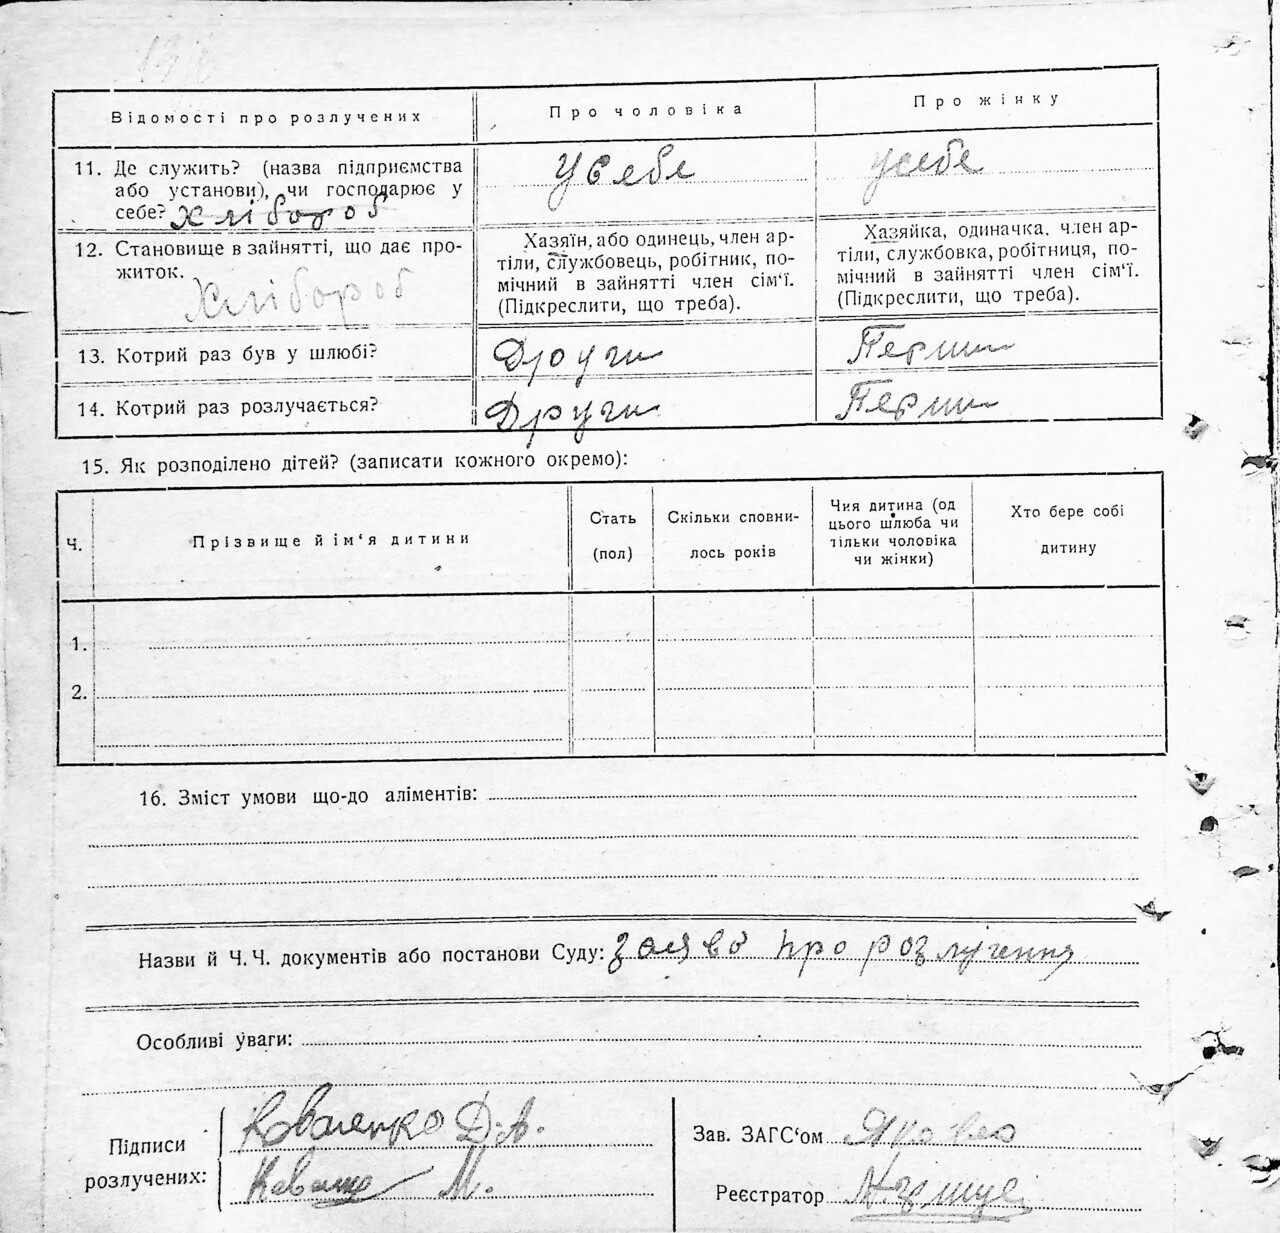 Відомості про розлучених
Про чоловіка
Про жінку
11. Де служить? (назва підприємства
або установи), чи господарює у
себе? Хлібороб
У себе
у себе
12. Становище в зайнятті, що дає про-
житок.
Хлібороб
Хазяїн, або одинець, член ар-
тіли, службовець, робітник, по-
мічний в зайнятті член сім‘ї.
(Підкреслити, що треба).
Хазяйка, одиначка, член ар-
тіли, службовка, робітниця, по-
мічний в зайнятті член сім‘ї.
(Підкреслити, що треба).
13. Котрий раз був у шлюбі?
Други
Перши
14. Котрий раз розлучається?
Други
Перши
15. Як розподілено дітей? (записати кожного окремо):
Ч.
Прізвище й ім‘я дитини
Стать
(пол)
Скільки сповни-
лось років
Чия дитина (од
цього шлюба чи
тільки чоловіка
чи жінки)
Хто бере собі
дитину
1.
2.
16. Зміст умови що-до аліментів:
Назви й Ч. Ч. документів або постанови Суду: заява про розлучення
Особливі уваги:
Підписи
розлучених:
Коваленко Д. А.
М.
Зав. ЗАГС‘ом
Реєстратор